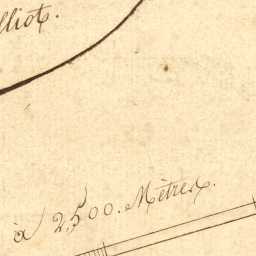 lliot.
à 2,500. Mètres.